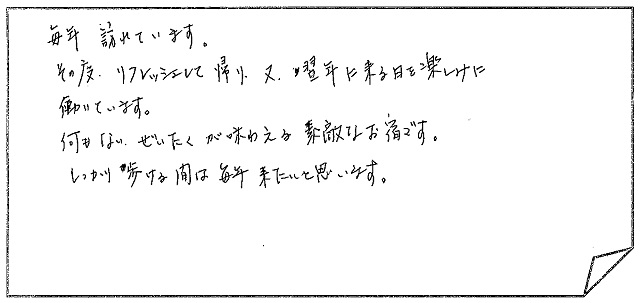 毎年 訪れています。
その度、リフレッシュして帰り、又、翌年に来る日を楽しみに
働いています。
何もない、ぜいたくが味わえる素敵なお宿です。
しっかり歩ける間は毎年来たいと思います。